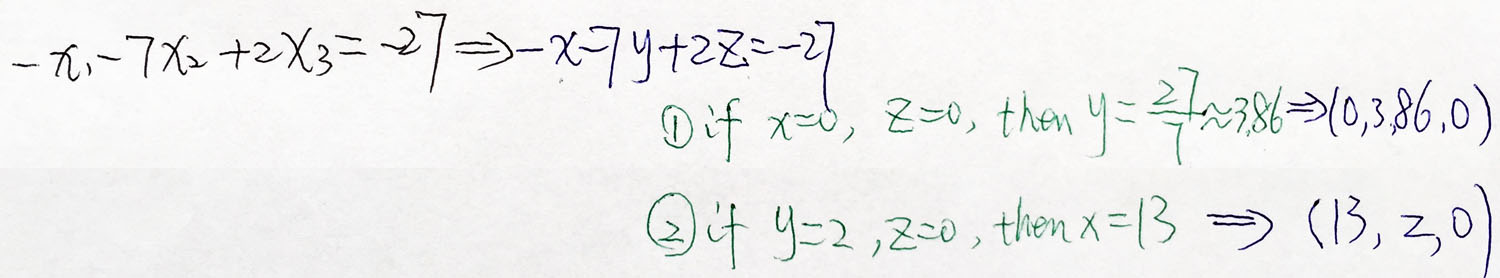 -x₁-7x₂+2x₃=-27⇒-x-7y+2z=-27
①if x=0, z=0, then y=27/7≈3.86⇒(0,3.86,0)
②if y=2,z=0, then x=13 ⇒ (13, 2,0)